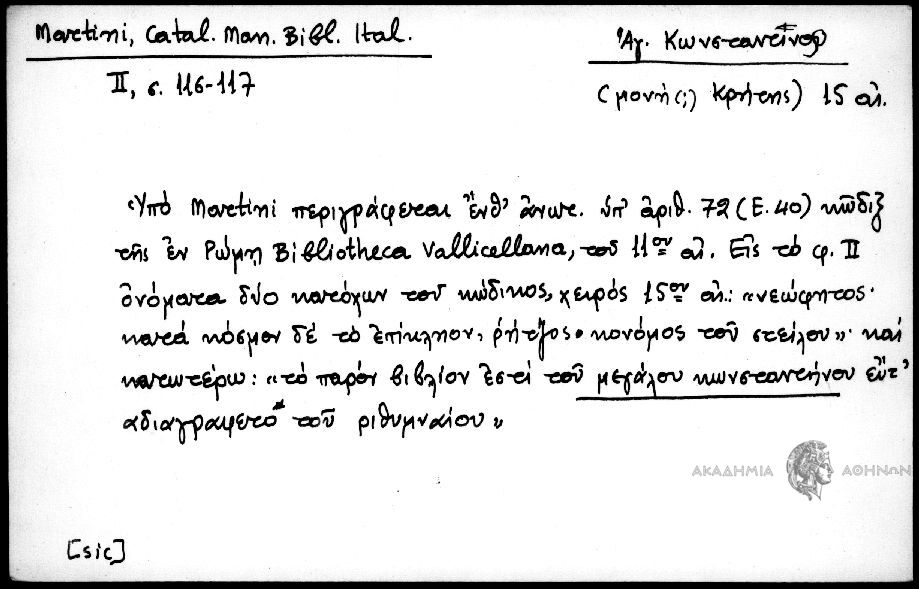 Martini, Catal. Man. Bibl. Ital.
II, σ. 116-117
Ἁγ. Κωνσταντίνου
(μονή(;) Κρήτης) 15 αἰ.
Ὑπό Martini περιγράφεται ἔνθ' ἀνωτ. ὑπ' ἀριθ. 72 (E. 40) κῶδιξ
τῆς ἐν Ρώμῃ Bibliotheca Vallicellana, τοῦ 11ου αἰ. Εἰς τό φ. II
ὀνόματα δύο κατόχων τοῦ κώδικος, χειρός 15ου αἰ.: «νεώφητος·
κατά κόσμον δέ τὸ ἐπίκλην, ῥήτζος· κονόμος τοῦ στείλου»· καί
κατωτέρω: «τό παρόν βιβλίον ἐστί τοῦ μεγάλου κωνσταντήνου εὖτ'
αδιαγραφετο* τοῦ ριθυμναίου»
[sic]
ΑΚΑΔΗΜΙΑ ΑΘΗΝΩΝ